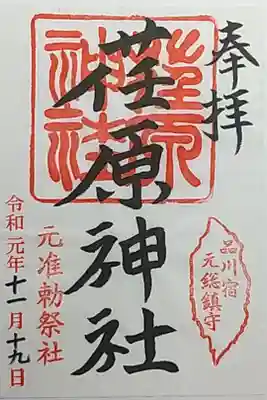 奉拝
荏原神社
荏原神社
品川宿
元総鎮守
元准勅祭社
令和元年十一月十九日